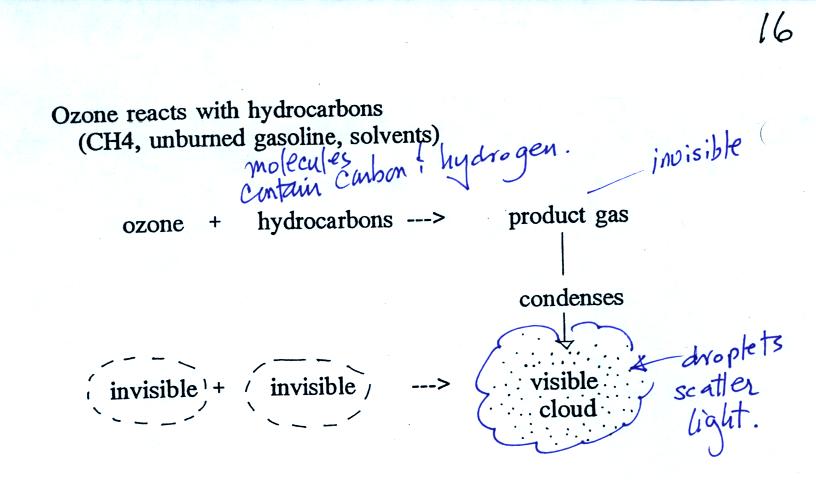 16
Ozone reacts with hydrocarbons
(CH4, unburned gasoline, solvents)
molecules
contain carbon & hydrogen.
invisible
ozone + hydrocarbons ---> product gas
condenses
invisible + invisible ---> visible
cloud
droplets
scatter
light.